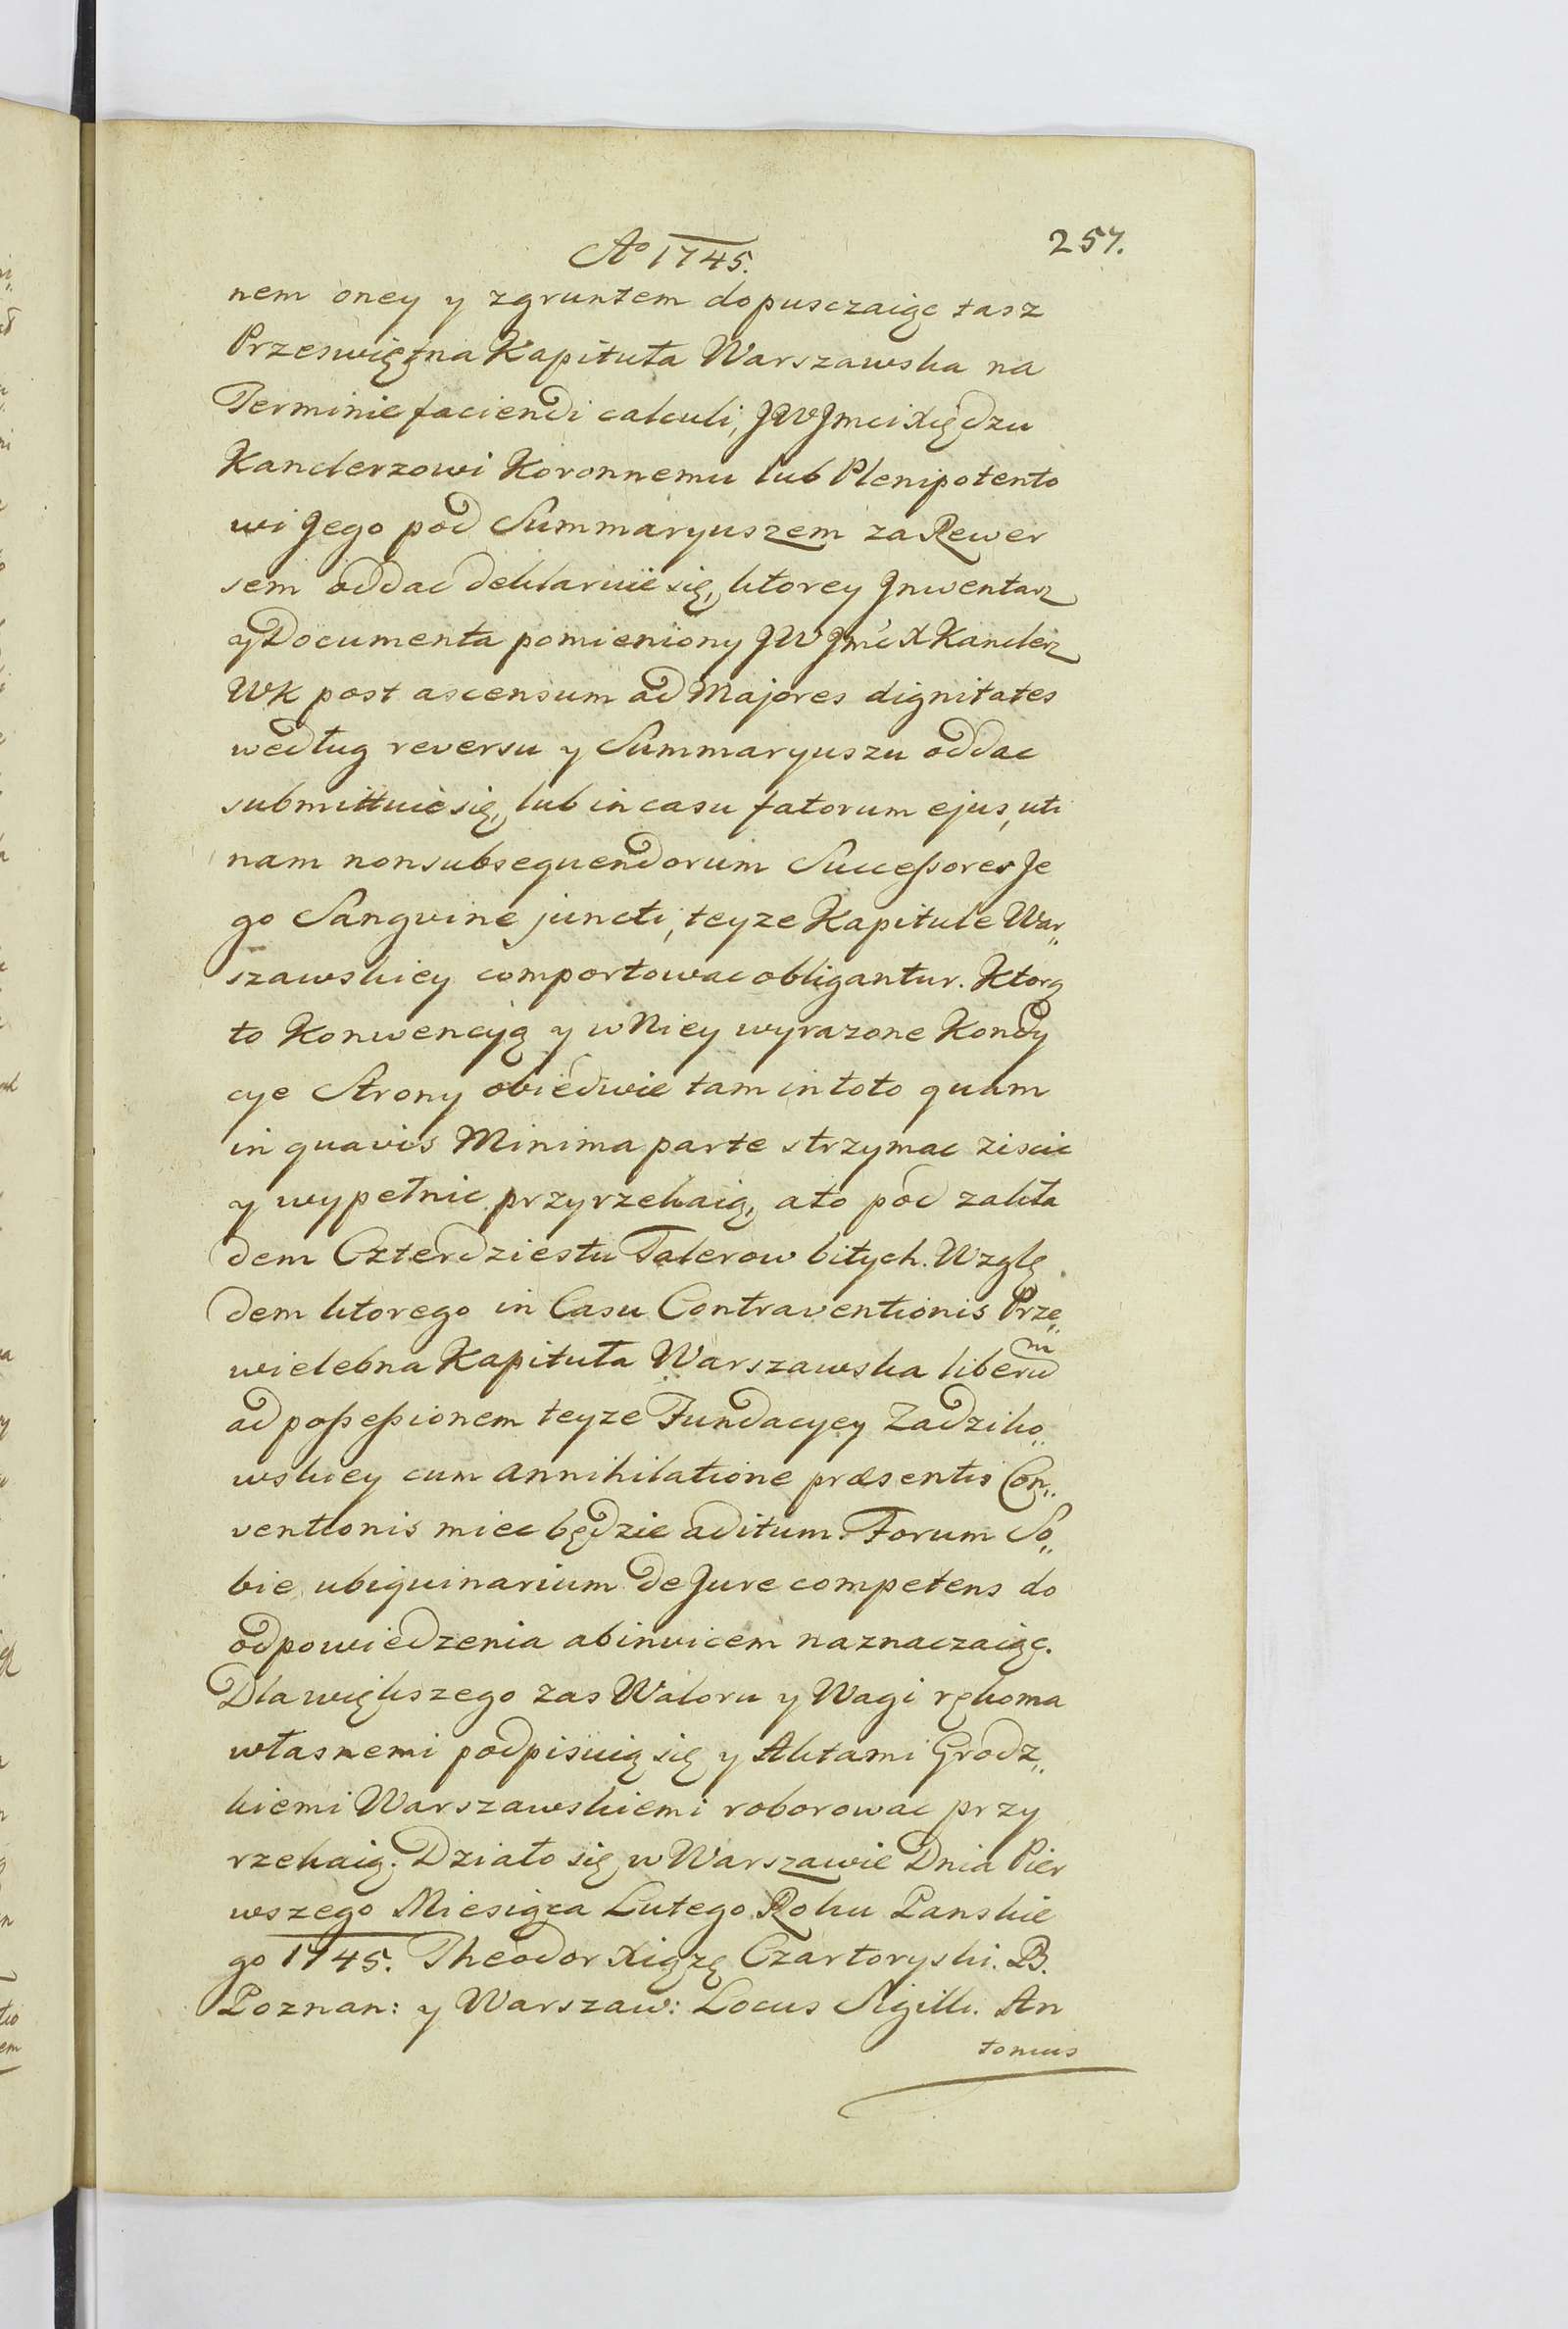 Ao 1745.
257.
nem oney y zgruntem dopusczaiąc tasz
Przeswiętna Kapituła Warszawska na
Terminie faciendi calculi, JWJmci Xiędzu
Kanclerzowi Koronnemu lub Plenipotento
wi Jego pod Summaryuszem za Rewer
sem oddac deklaruie się, ktorey Jnwentarz
y Documenta pomieniony JW Jmć X Kanclerz
WK post ascensum ad Majores dignitates
według reversu y Summaryuszu oddac
submittuie się, lub in casu fatorum ejus, uti
nam non subsequendorum Successores Je
go Sangvine juncti, teyze Kapitule War„
szawskiey comportowac obligantur. Ktorą
to Konwencyą y w Niey wyrazone Kondy
cye Strony obiedwie tam in toto quam
in quavis Minima parte strzymac ziscic
y wypełnic przyrzekaią, a to pod zakła
dem Czterdziestu Talerow bitych. Wzglę
dem ktorego in Casu Contraventionis Prze„
wielebna Kapituła Warszawska liberum
ad possessionem teyze Fundacyey Zadziko„
wskiey cum annihilatione præsentis Con„
ventionis miec będzie aditum. Forum So„
bie ubiquinarium de Jure competens do
odpowiedzenia abinvicem naznaczaiąc.
Dla większego zas Waloru y Wagi rękoma
własnemi podpisuią się y Aktami Grodz„
kiemi Warszawskiemi roborowac przy
rzekaią. Działo się w Warszawie Dnia Pier
wszego Miesiąca Lutego Roku Panskie
go 1745. Theodor Xiążę Czartoryski. B.
Poznan: y Warszaw: Locus Sigilli. An
tonius